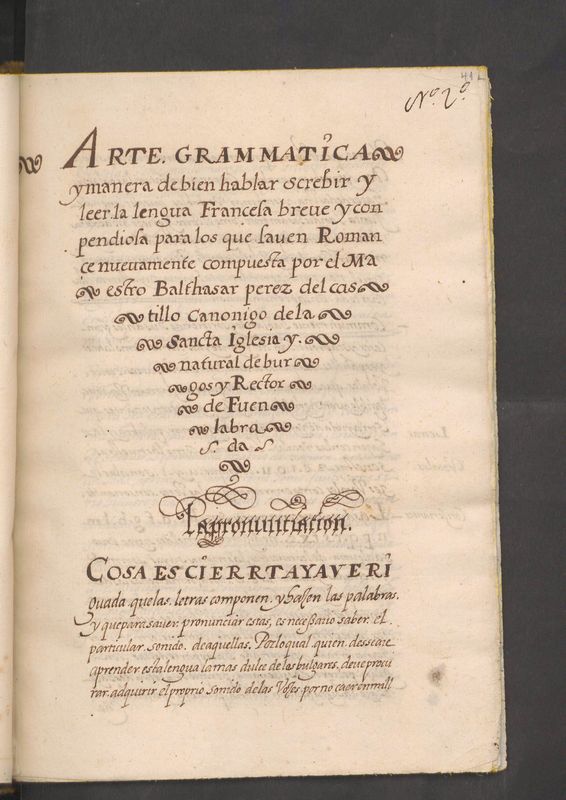 41
Nº. 2º.
ARTE. GRAMMATICA
y manera de bien hablar escrebir y
leer. la lengua Francesa breue y con
pendiosa para los que sauen Roman
çe nueuamente compuesta por el Ma
estro Balthasar perez del cas
tillo canonigo de la
Sancta Iglesia y.
natural de bur
gos y Rector
de Fuen
labra
da
La pronuntiation.
COSA ES CIERRTA Y AVERI
guada que las. letras componen. y hazen las palabras.
y que para sauer. pronunciar estas, es necessario saber. el.
particular. sonido. de aquellas. Por lo qual. quien. dessea re
aprender esta lengua la mas dulce de las bulgares. deue procu
rar. adquirir el proprio sonido de las Vozes. por no caer en mill